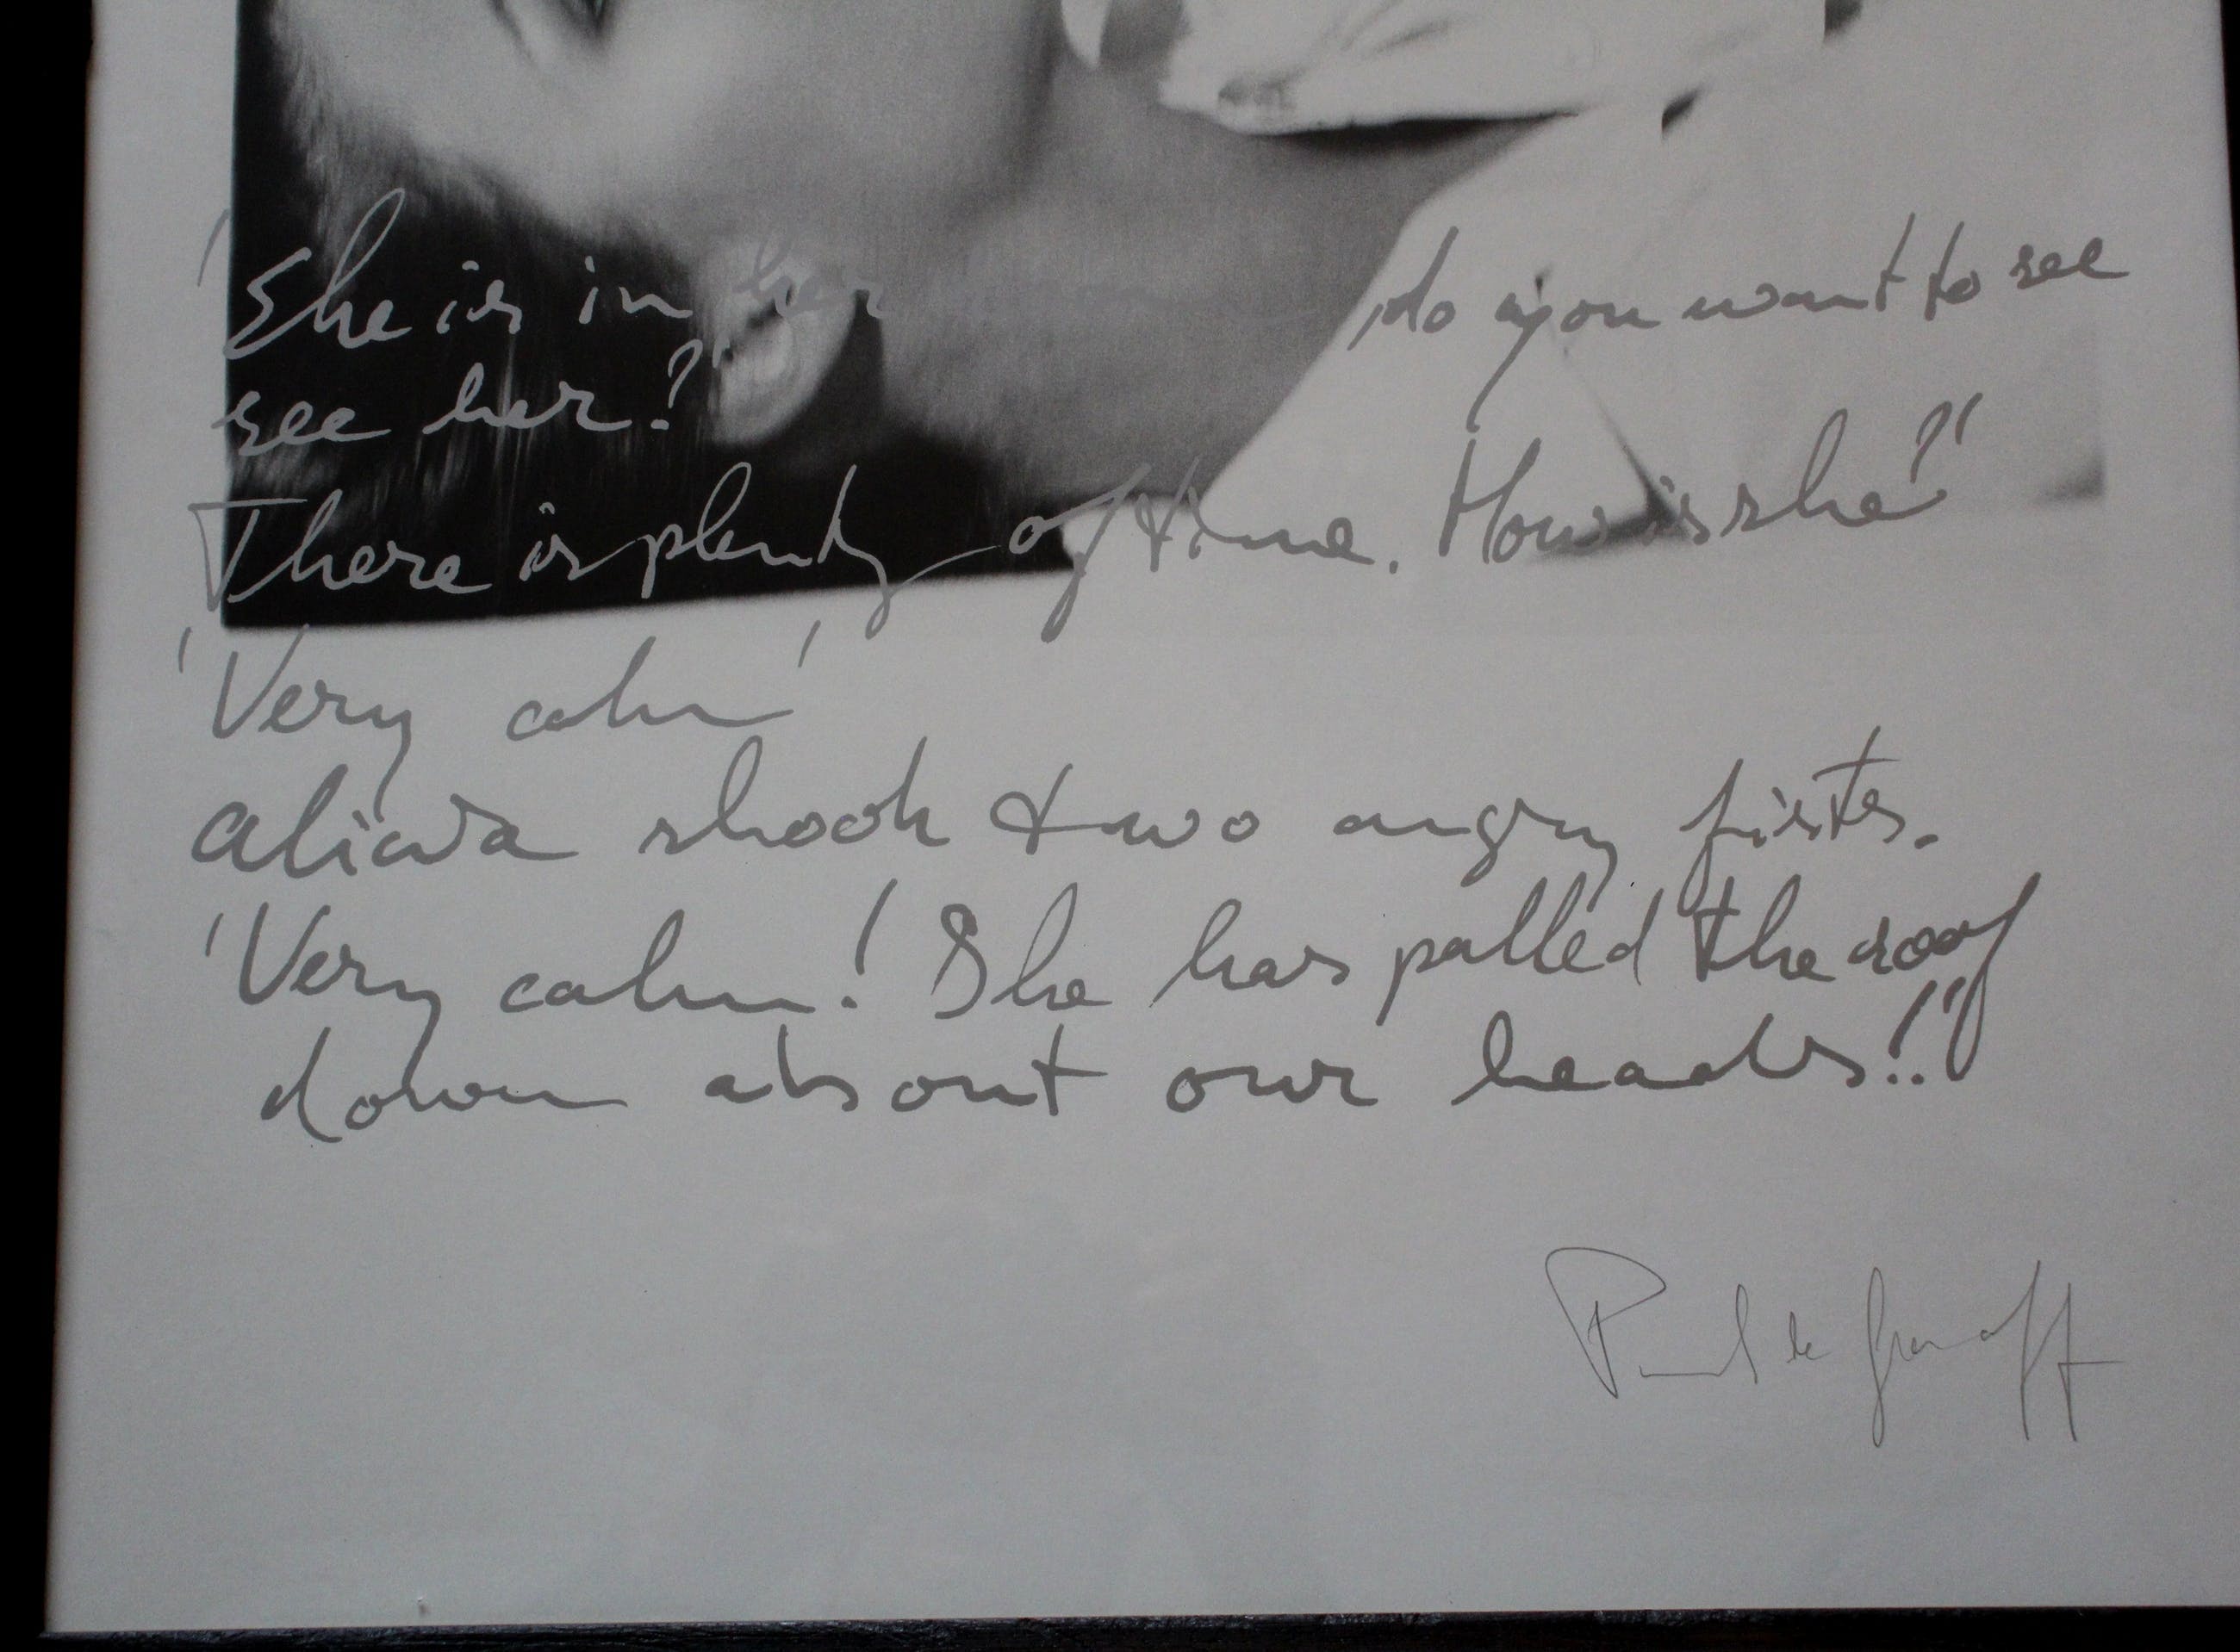 'She is in her , do you want to see
see her?'
There is plenty of time. How is she?'
'Very calm'
alicia shook two angry fists.
'Very calm! She has pulled the roof
down about our heads!!'